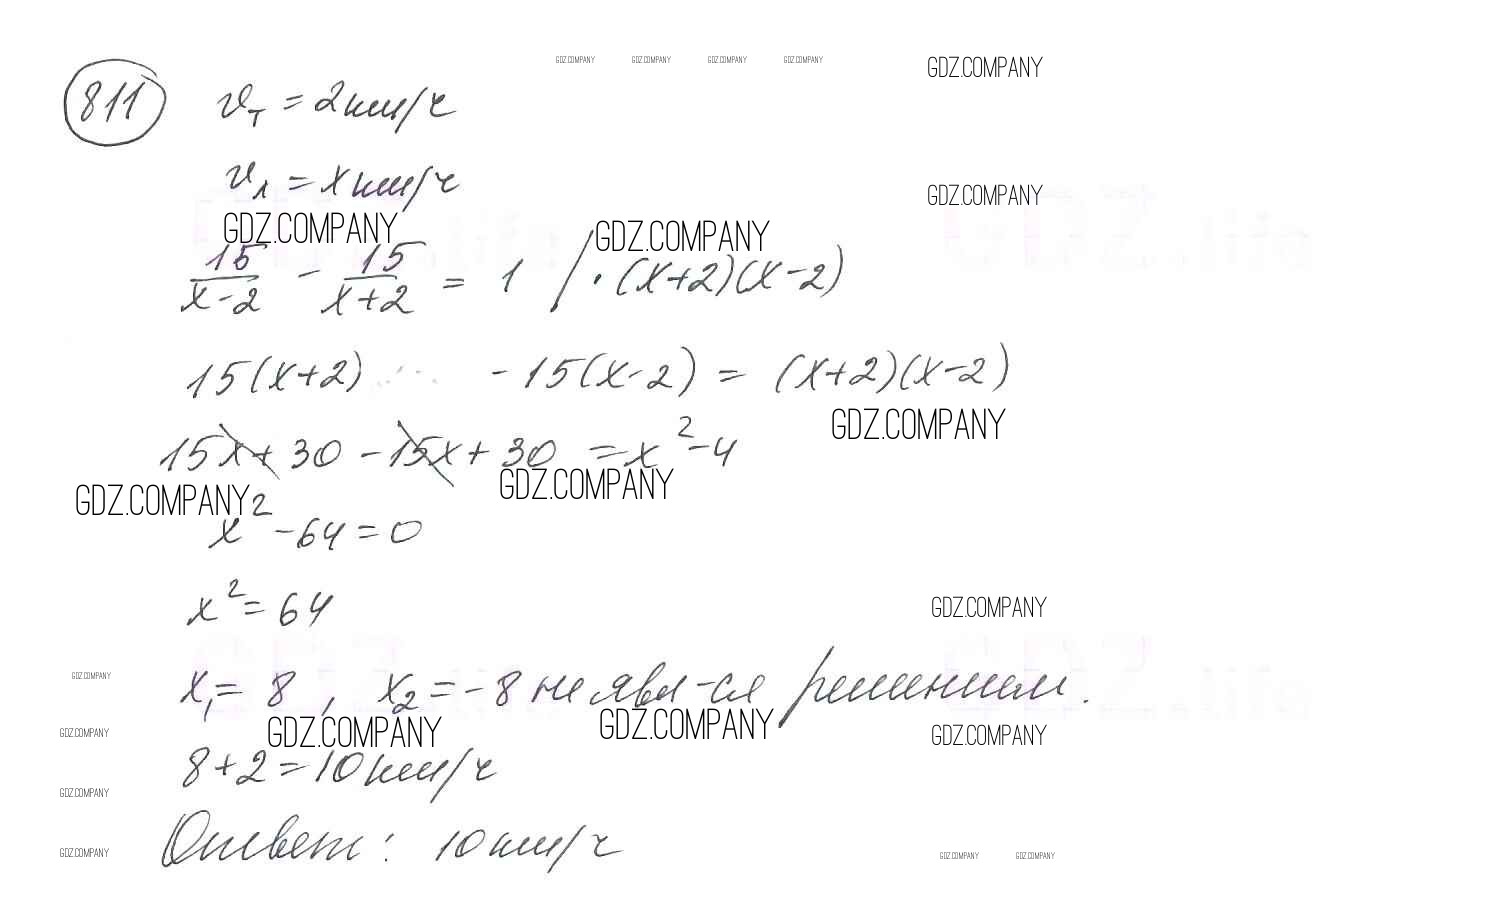 GDZ.COMPANY GDZ.COMPANY GDZ.COMPANY GDZ.COMPANY GDZ.COMPANY
811 v_т = 2 км/ч
v_л = x км/ч
GDZ.COMPANY
GDZ.COMPANY GDZ.COMPANY
15/(x-2) - 15/(x+2) = 1 / · (x+2)(x-2)
15(x+2) - 15(x-2) = (x+2)(x-2)
GDZ.COMPANY
15x + 30 - 15x + 30 = x² - 4
GDZ.COMPANY GDZ.COMPANY
x² - 64 = 0
x² = 64
GDZ.COMPANY
GDZ.COMPANY
x₁ = 8 , x₂ = -8 не явл-ся решением.
GDZ.COMPANY GDZ.COMPANY GDZ.COMPANY GDZ.COMPANY
8 + 2 = 10 км/ч
GDZ.COMPANY
Ответ: 10 км/ч
GDZ.COMPANY GDZ.COMPANY GDZ.COMPANY